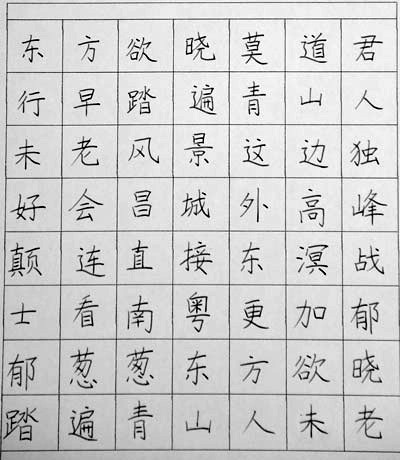 东方欲晓莫道君
行早踏遍青山人
未老风景这边独
好会昌城外高峰
颠连直接东溟战
士看南粤更加郁
郁葱葱东方欲晓
踏遍青山人未老